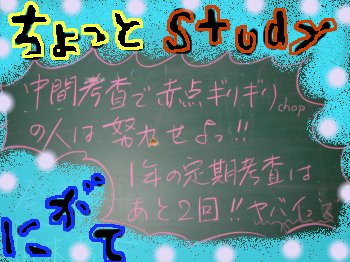 ちょっと Study
中間考査で赤点ギリギリ
の人は努力せよっ!!
1年の定期考査は
あと2回!!ヤバイっ
にがて